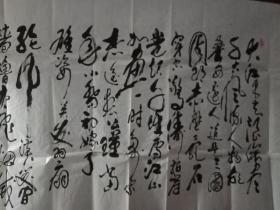 大江東去浪淘盡
千古風流人物故
壘西邊人道是三國
周郎赤壁亂石
穿空驚濤拍岸
卷起千堆雪江山
如畫一時多少豪
杰遥想公瑾當
年小喬初嫁了
雄姿英發羽扇
綸巾談笑間
檣櫓灰飛煙滅